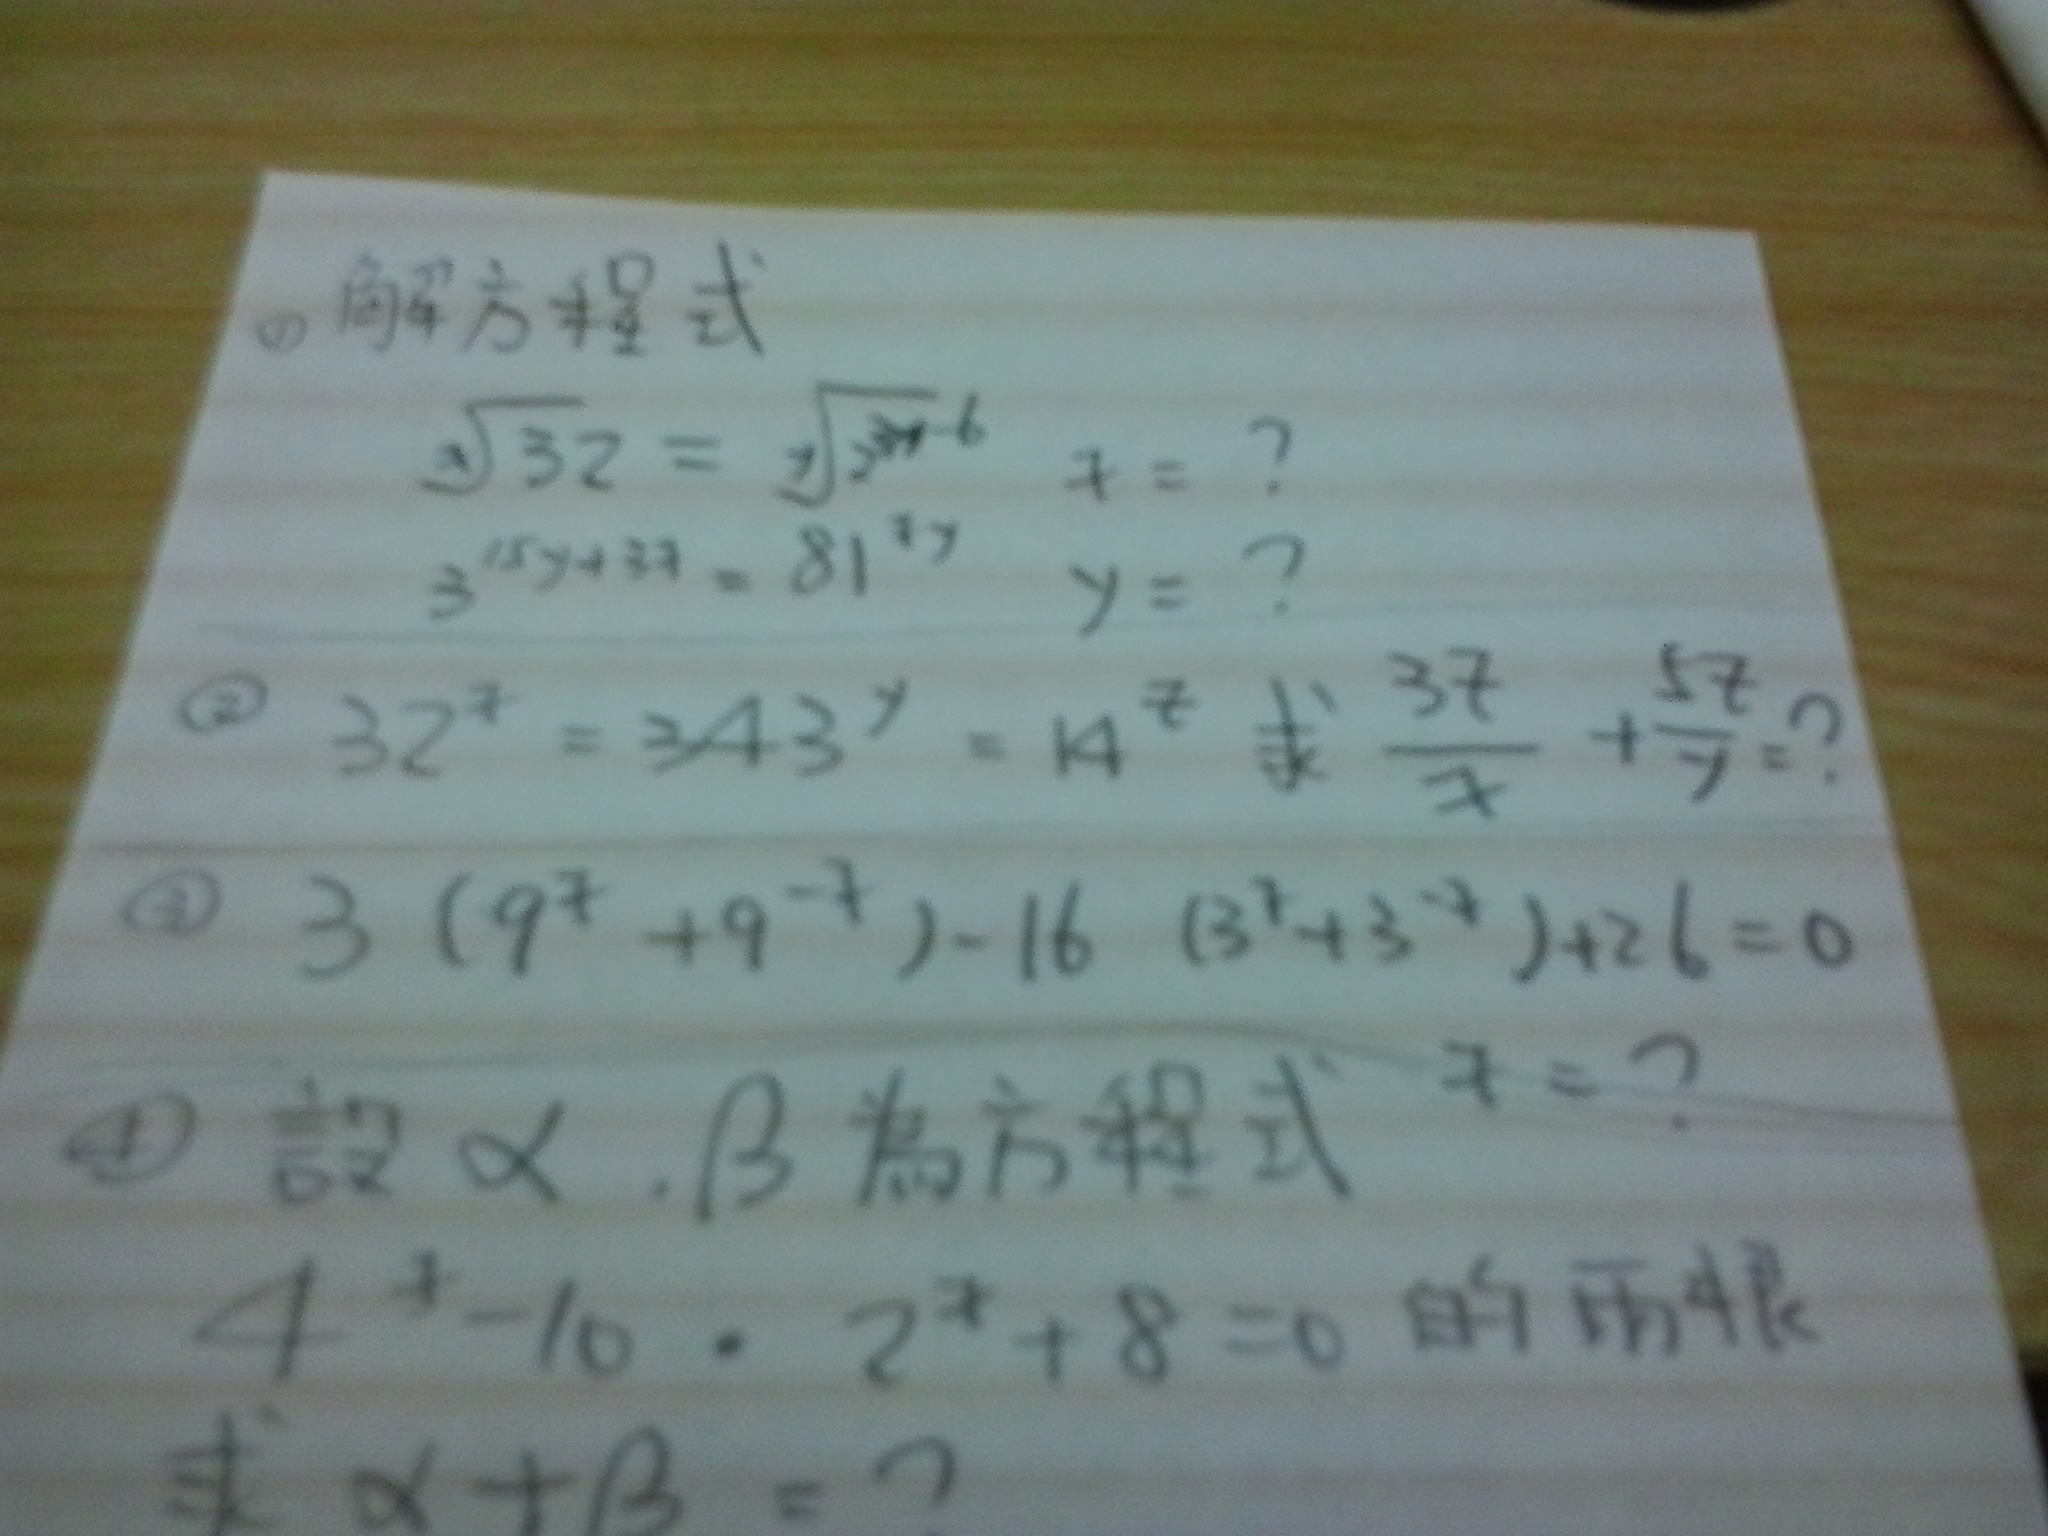 ① 解方程式
ˣ√32 = ʸ√2³ˣ⁻⁶ x = ?
3^15y+3x = 81^xy y = ?
② 32ˣ = 343ʸ = 14ᶻ 求 3z/x + 5z/y = ?
③ 3 (9ˣ + 9⁻ˣ) - 16 (3ˣ + 3⁻ˣ) + 26 = 0
x = ?
④ 設 α . β 為方程式
4ˣ - 10 · 2ˣ + 8 = 0 的兩根
求 α + β = ?